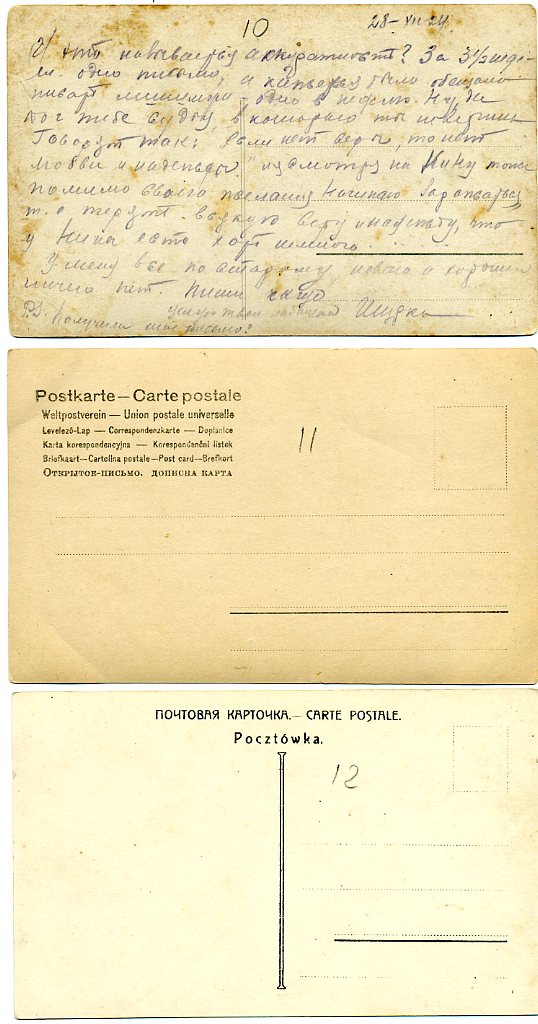 10 28-VII-24
И это называется аккуратность? За 3 1/2 неде-
ли одно письмо, а
одно в неделю. Ну, да
Бог тебе судья, в которого ты не веришь
Говорят так: "если нет веры, то нет
любви и надежды" и смотря на Нину тоже
помимо своего послания начинаю
т.е. терять всякую веру и надежду, что
у Нины есть хоть немного...
У меня все по старому, нового и хорошего
ничего нет. Пиши чаще
P.S. Получила мое письмо?
Postkarte — Carte postale
Weltpostverein — Union postale universelle
Levelező-Lap — Correspondenzkarte — Dopisnice
Karta korespondencyjna — Korespondenční listek
Briefkaart — Cartolina postale — Post card — Brefkort
ОТКРЫТОЕ-ПИСЬМО. ДОПИСНА КАРТА
11
ПОЧТОВАЯ КАРТОЧКА. — CARTE POSTALE.
Pocztówka.
12